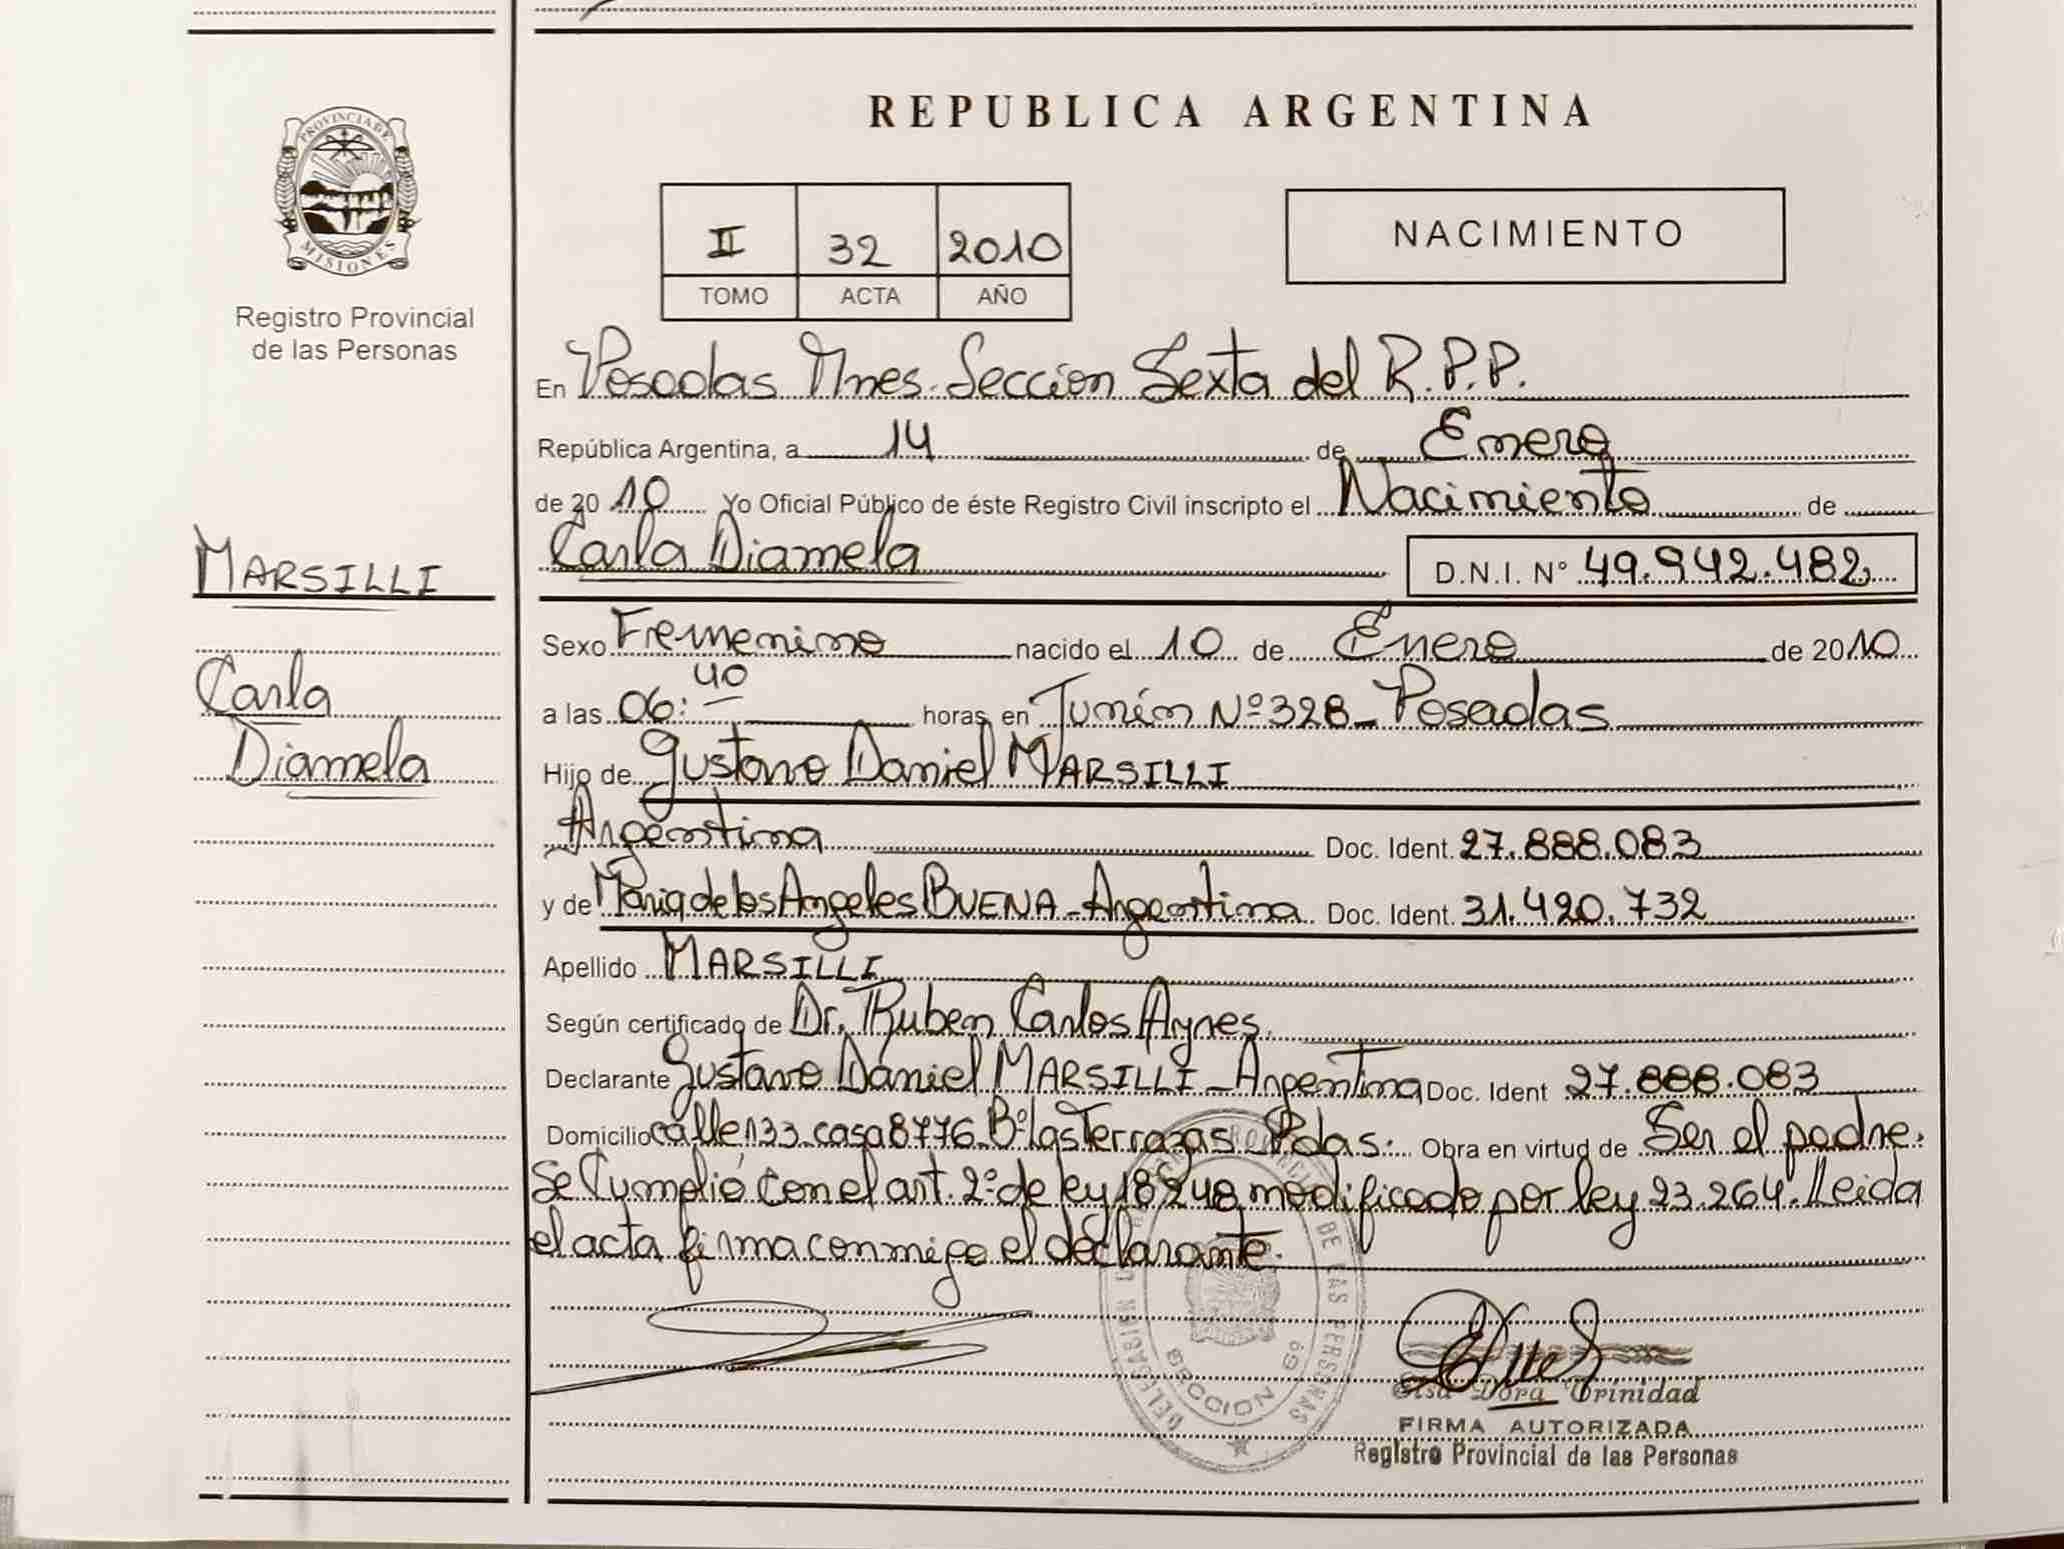 PROVINCIA DE
MISIONES
Registro Provincial
de las Personas
MARSILLI
Carla
Diamela
REPUBLICA ARGENTINA
II 32 2010
TOMO ACTA AÑO
NACIMIENTO
En Posadas Mnes. Seccion Sexta del R.P.P.
República Argentina, a 14 de Enero
de 20 10 Yo Oficial Público de éste Registro Civil inscripto el Nacimiento de
Carla Diamela D.N.I. N° 49.942.482
Sexo Femenino nacido el 10 de Enero de 2010
a las 06:40 horas, en Junín Nº 328_ Posadas
Hijo de Gustavo Daniel MARSILLI
Argentina Doc. Ident. 27.888.083
y de Maria de los Angeles BUENA_Argentina Doc. Ident. 31.420.732
Apellido MARSILLI
Según certificado de Dr. Ruben Carlos Ayres.
Declarante Gustavo Daniel MARSILLI_Argentina Doc. Ident 27.888.083
Domicilio calle 133 casa 8776 Bº Las Terrazas Pdas. Obra en virtud de Ser el padre.
Se Cumplió con el art. 2º de ley 18.248 modificado por ley 23.264. Leida
el acta firma conmigo el declarante.
SECCION 6º
DE LAS PERSONAS
Elsa Dora Trinidad
FIRMA AUTORIZADA
Registro Provincial de las Personas